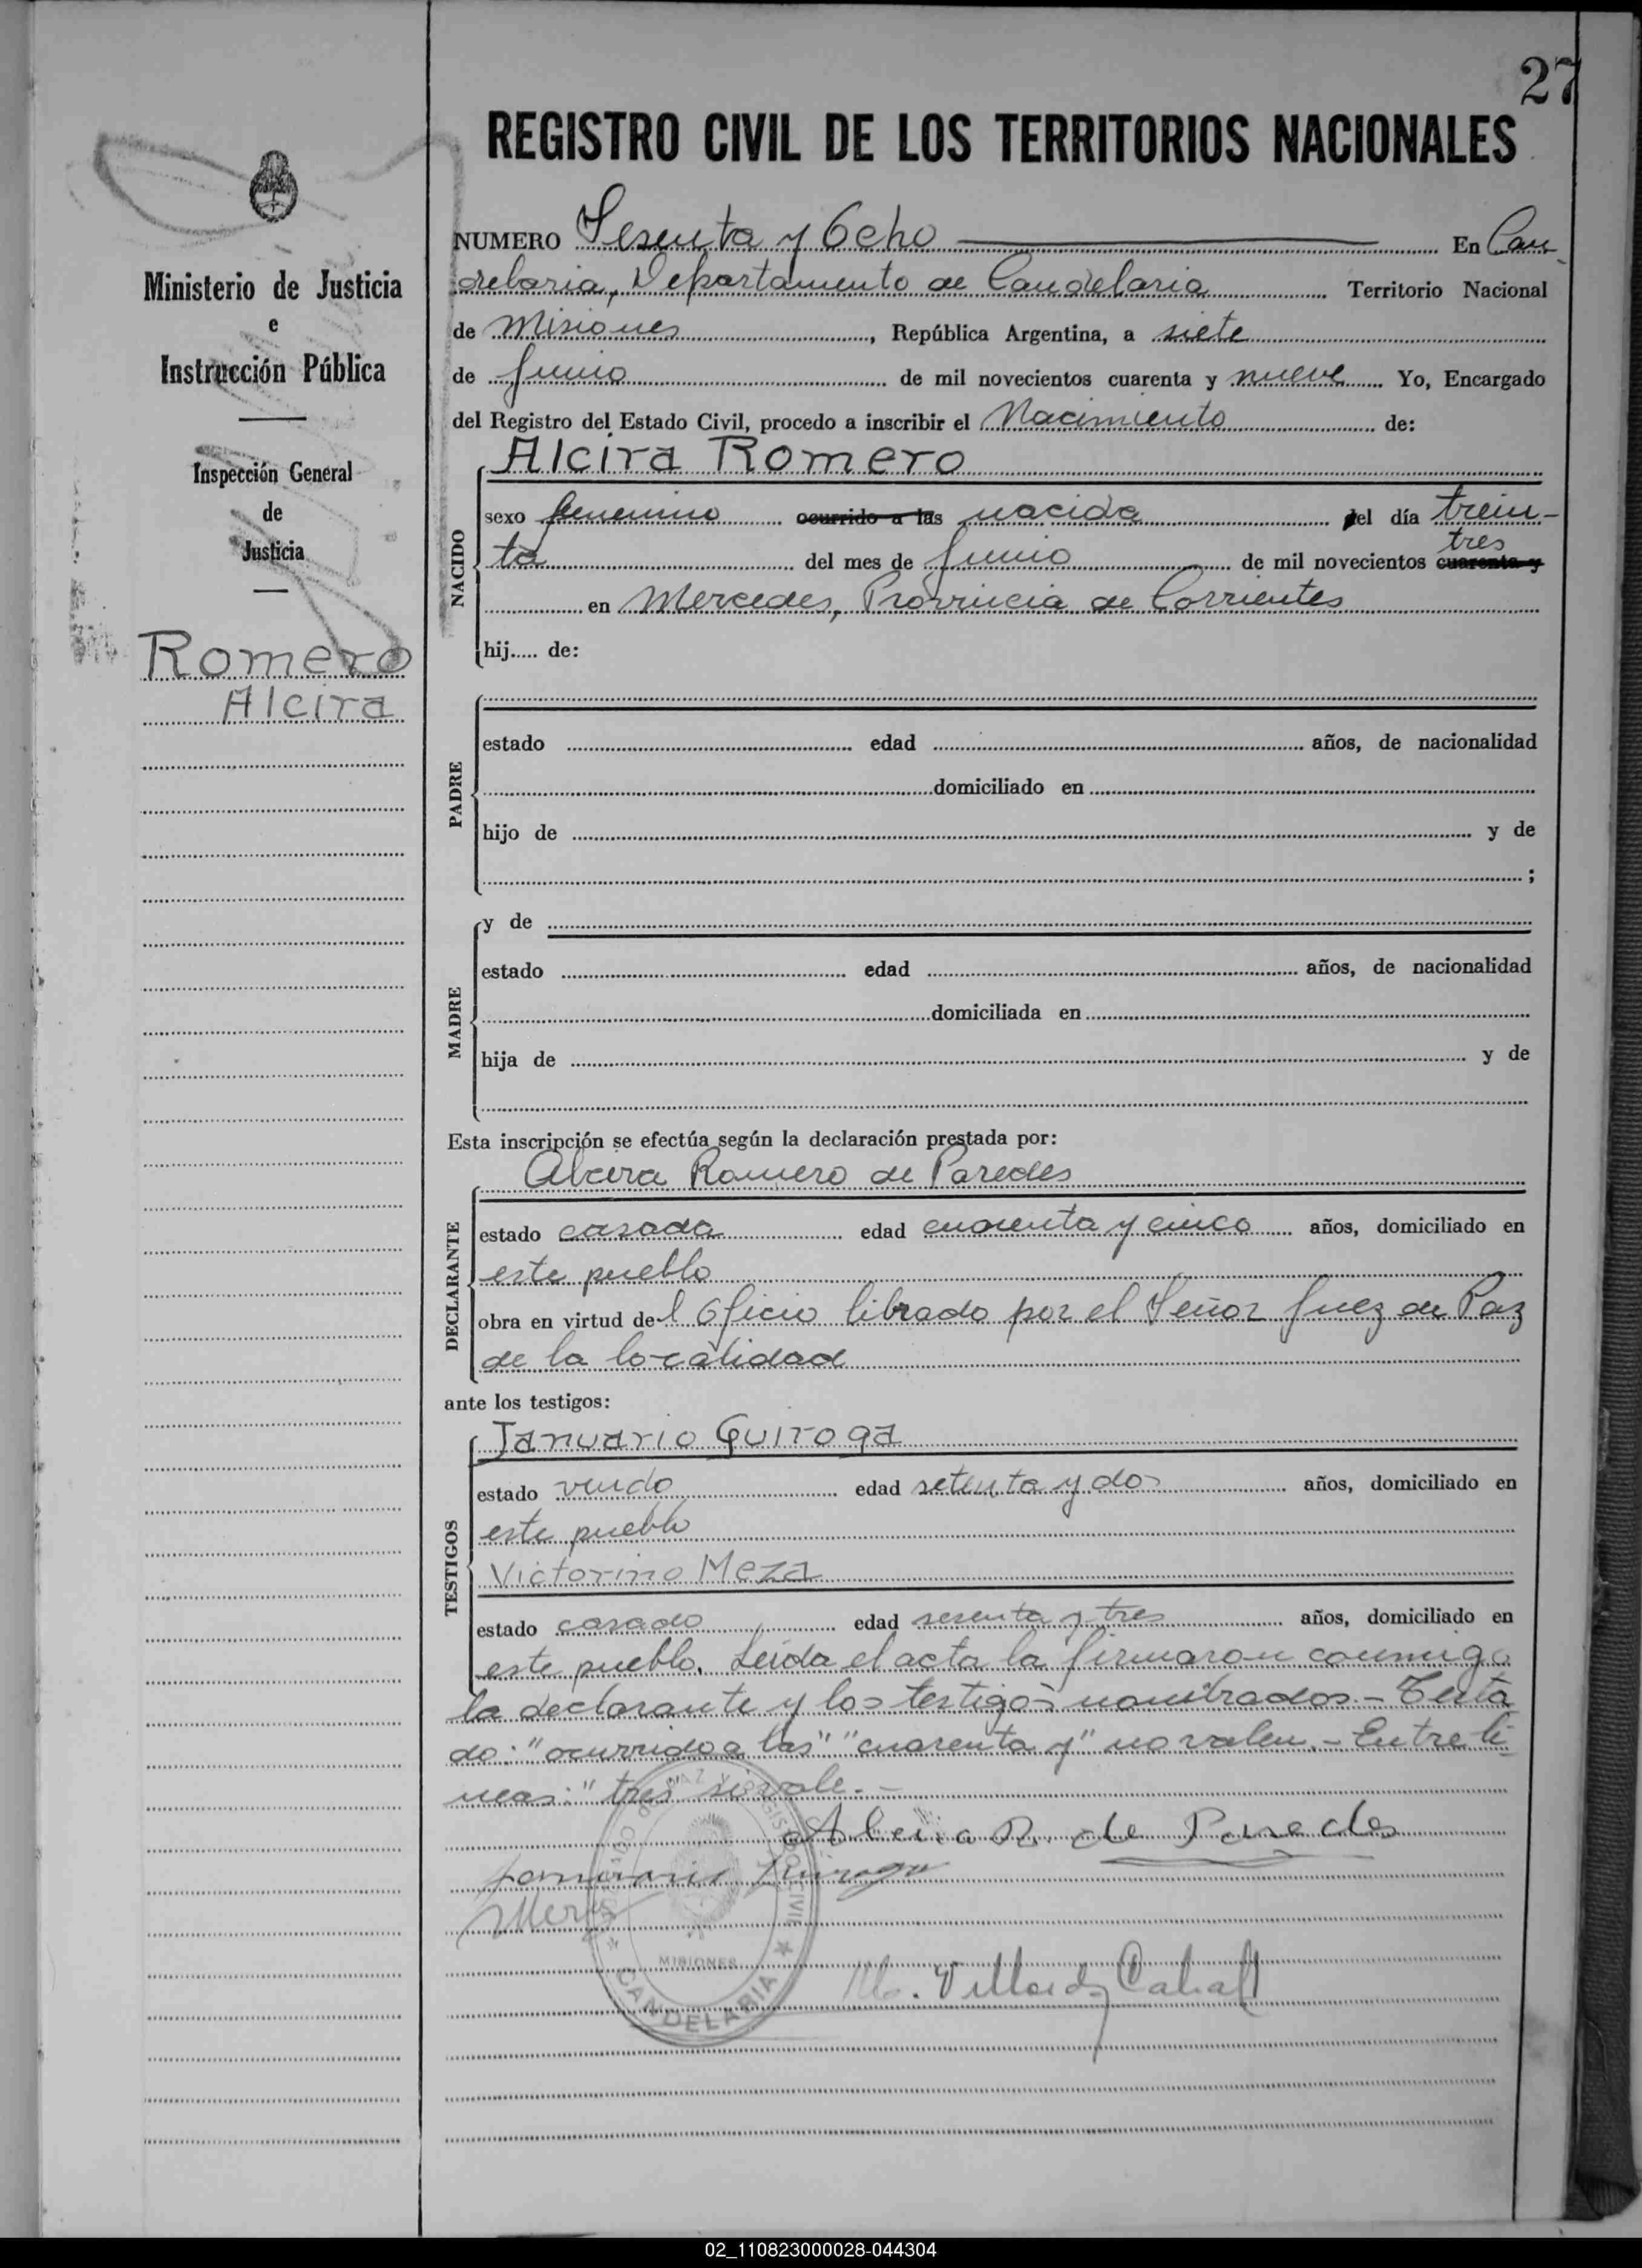 27
REGISTRO CIVIL DE LOS TERRITORIOS NACIONALES
Ministerio de Justicia
e
Instrucción Pública
Inspección General
de
Justicia
Romero
Alcira
NUMERO Sesenta y Ocho En Can-
delaria, Departamento de Candelaria Territorio Nacional
de Misiones, República Argentina, a siete
de Junio de mil novecientos cuarenta y nueve Yo, Encargado
del Registro del Estado Civil, procedo a inscribir el Nacimiento de:
Alcira Romero
NACIDO
sexo femenino ocurrido a las nacida el día trein-
tres
ta del mes de Junio de mil novecientos cuarenta y
en Mercedes, Provincia de Corrientes
hij..... de:
PADRE
estado edad años, de nacionalidad
domiciliado en
hijo de y de
;
MADRE
y de
estado edad años, de nacionalidad
domiciliada en
hija de y de
Esta inscripción se efectúa según la declaración prestada por:
Alcira Romero de Paredes
DECLARANTE
estado casada edad cuarenta y cinco años, domiciliado en
este pueblo
obra en virtud del Oficio librado por el Señor Juez de Paz
de la localidad
ante los testigos:
TESTIGOS
Januario Quiroga
estado viudo edad setenta y dos años, domiciliado en
este pueblo
Victorino Meza
estado casado edad sesenta y tres años, domiciliado en
este pueblo. Leida el acta la firmaron conmigo
la declarante y los testigos nombrados.- Testa
do: "ocurrido a las" "cuarenta y" no valen.- Entre li-
neas: "tres" si vale.-
Alcira R. de Paredes
Januario Quiroga
MISIONES
CANDELARIA
02_110823000028-044304